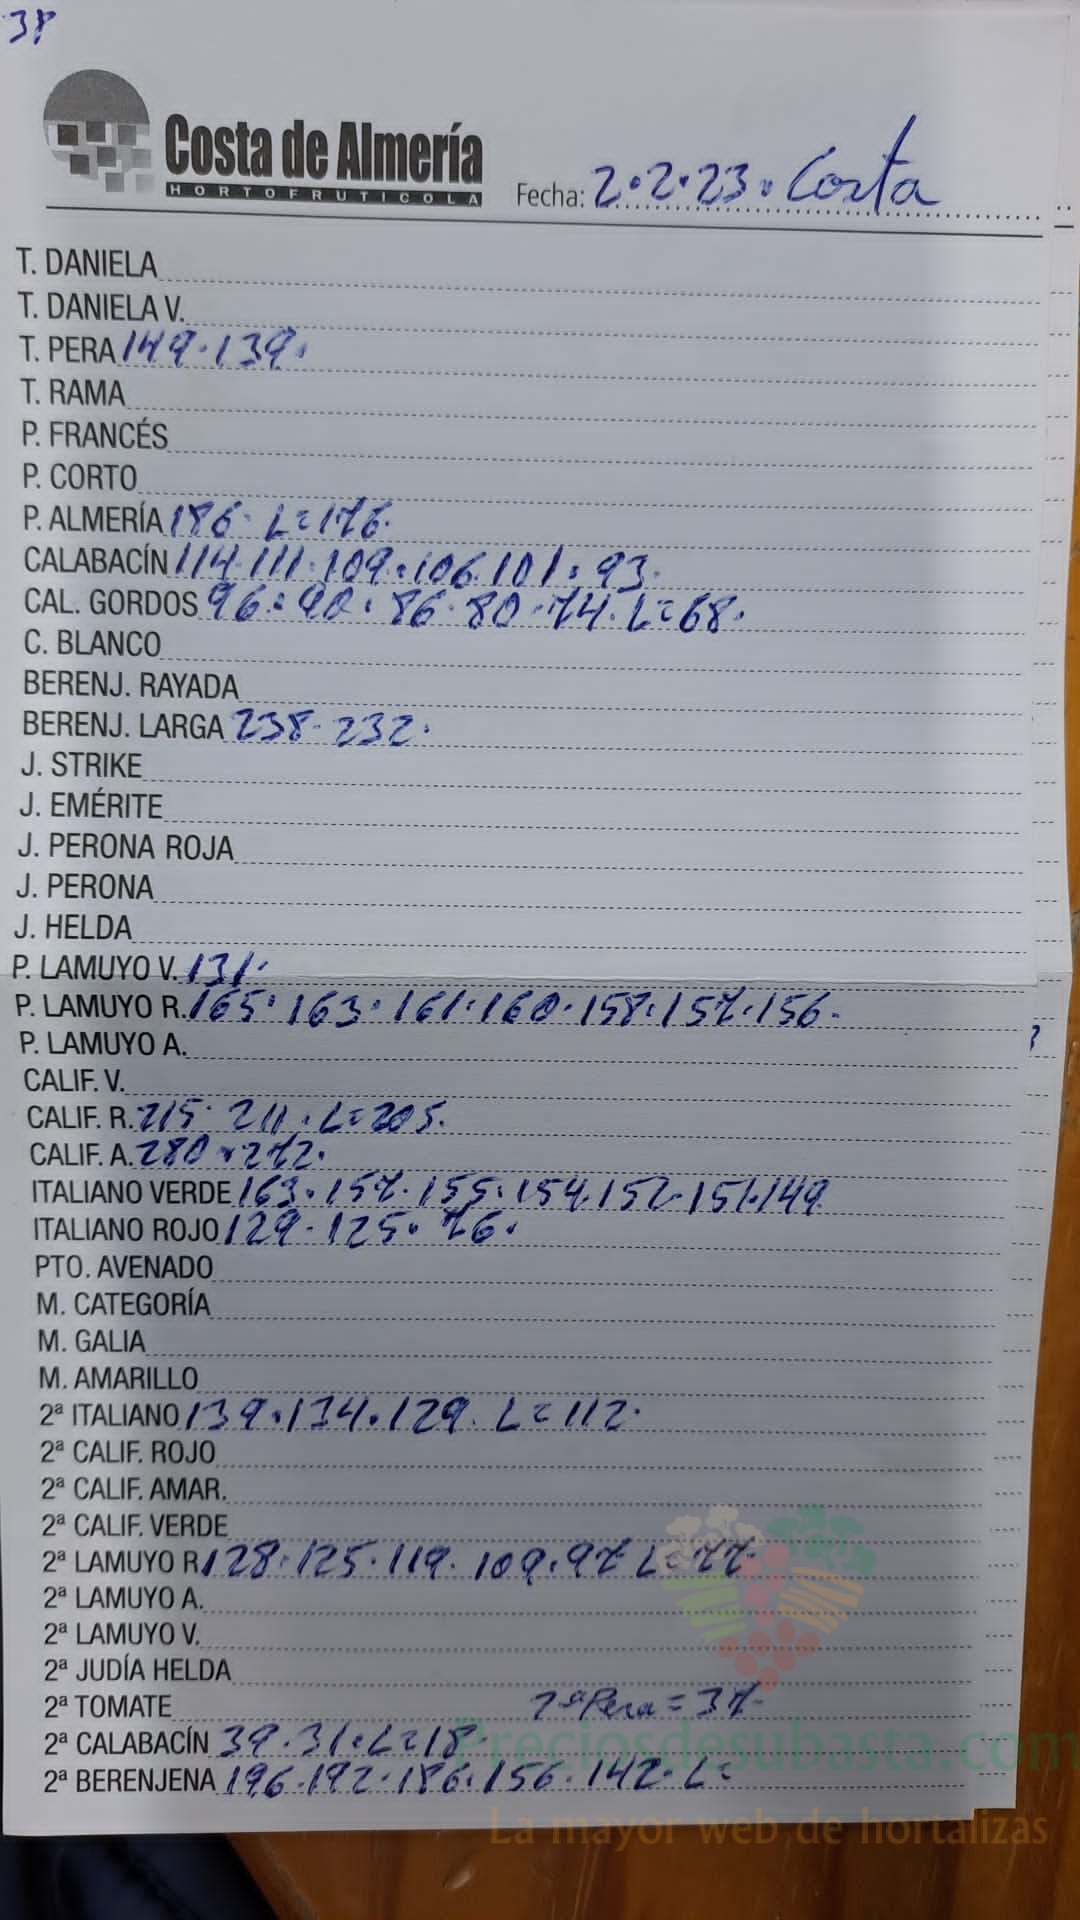 38
Costa de Almería
HORTOFRUTICOLA
Fecha: 2.2.23. Costa
T. DANIELA
T. DANIELA V.
T. PERA 149.139.
T. RAMA
P. FRANCÉS
P. CORTO
P. ALMERÍA 186. L=176.
CALABACÍN 114.111.109.106.101.93.
CAL. GORDOS 96.90.86.80.74.L=68.
C. BLANCO
BERENJ. RAYADA
BERENJ. LARGA 238.232.
J. STRIKE
J. EMÉRITE
J. PERONA ROJA
J. PERONA
J. HELDA
P. LAMUYO V. 131.
P. LAMUYO R. 165.163.161.160.158.157.156.
P. LAMUYO A.
CALIF. V.
CALIF. R. 215. 211.L=205.
CALIF. A. 280.272.
ITALIANO VERDE 163.157.155.154.152.151.149
ITALIANO ROJO 129.125.76.
PTO. AVENADO
M. CATEGORÍA
M. GALIA
M. AMARILLO
2ª ITALIANO 139.134.129. L=112.
2ª CALIF. ROJO
2ª CALIF. AMAR.
2ª CALIF. VERDE
2ª LAMUYO R. 128.125.119.109.97 L=77
2ª LAMUYO A.
2ª LAMUYO V.
2ª JUDÍA HELDA
2ª TOMATE 2ª Pera=37
2ª CALABACÍN 39.31.L=18.
2ª BERENJENA 196.192.186.156.142.L=
Preciosdesubasta.com
La mayor web de hortalizas